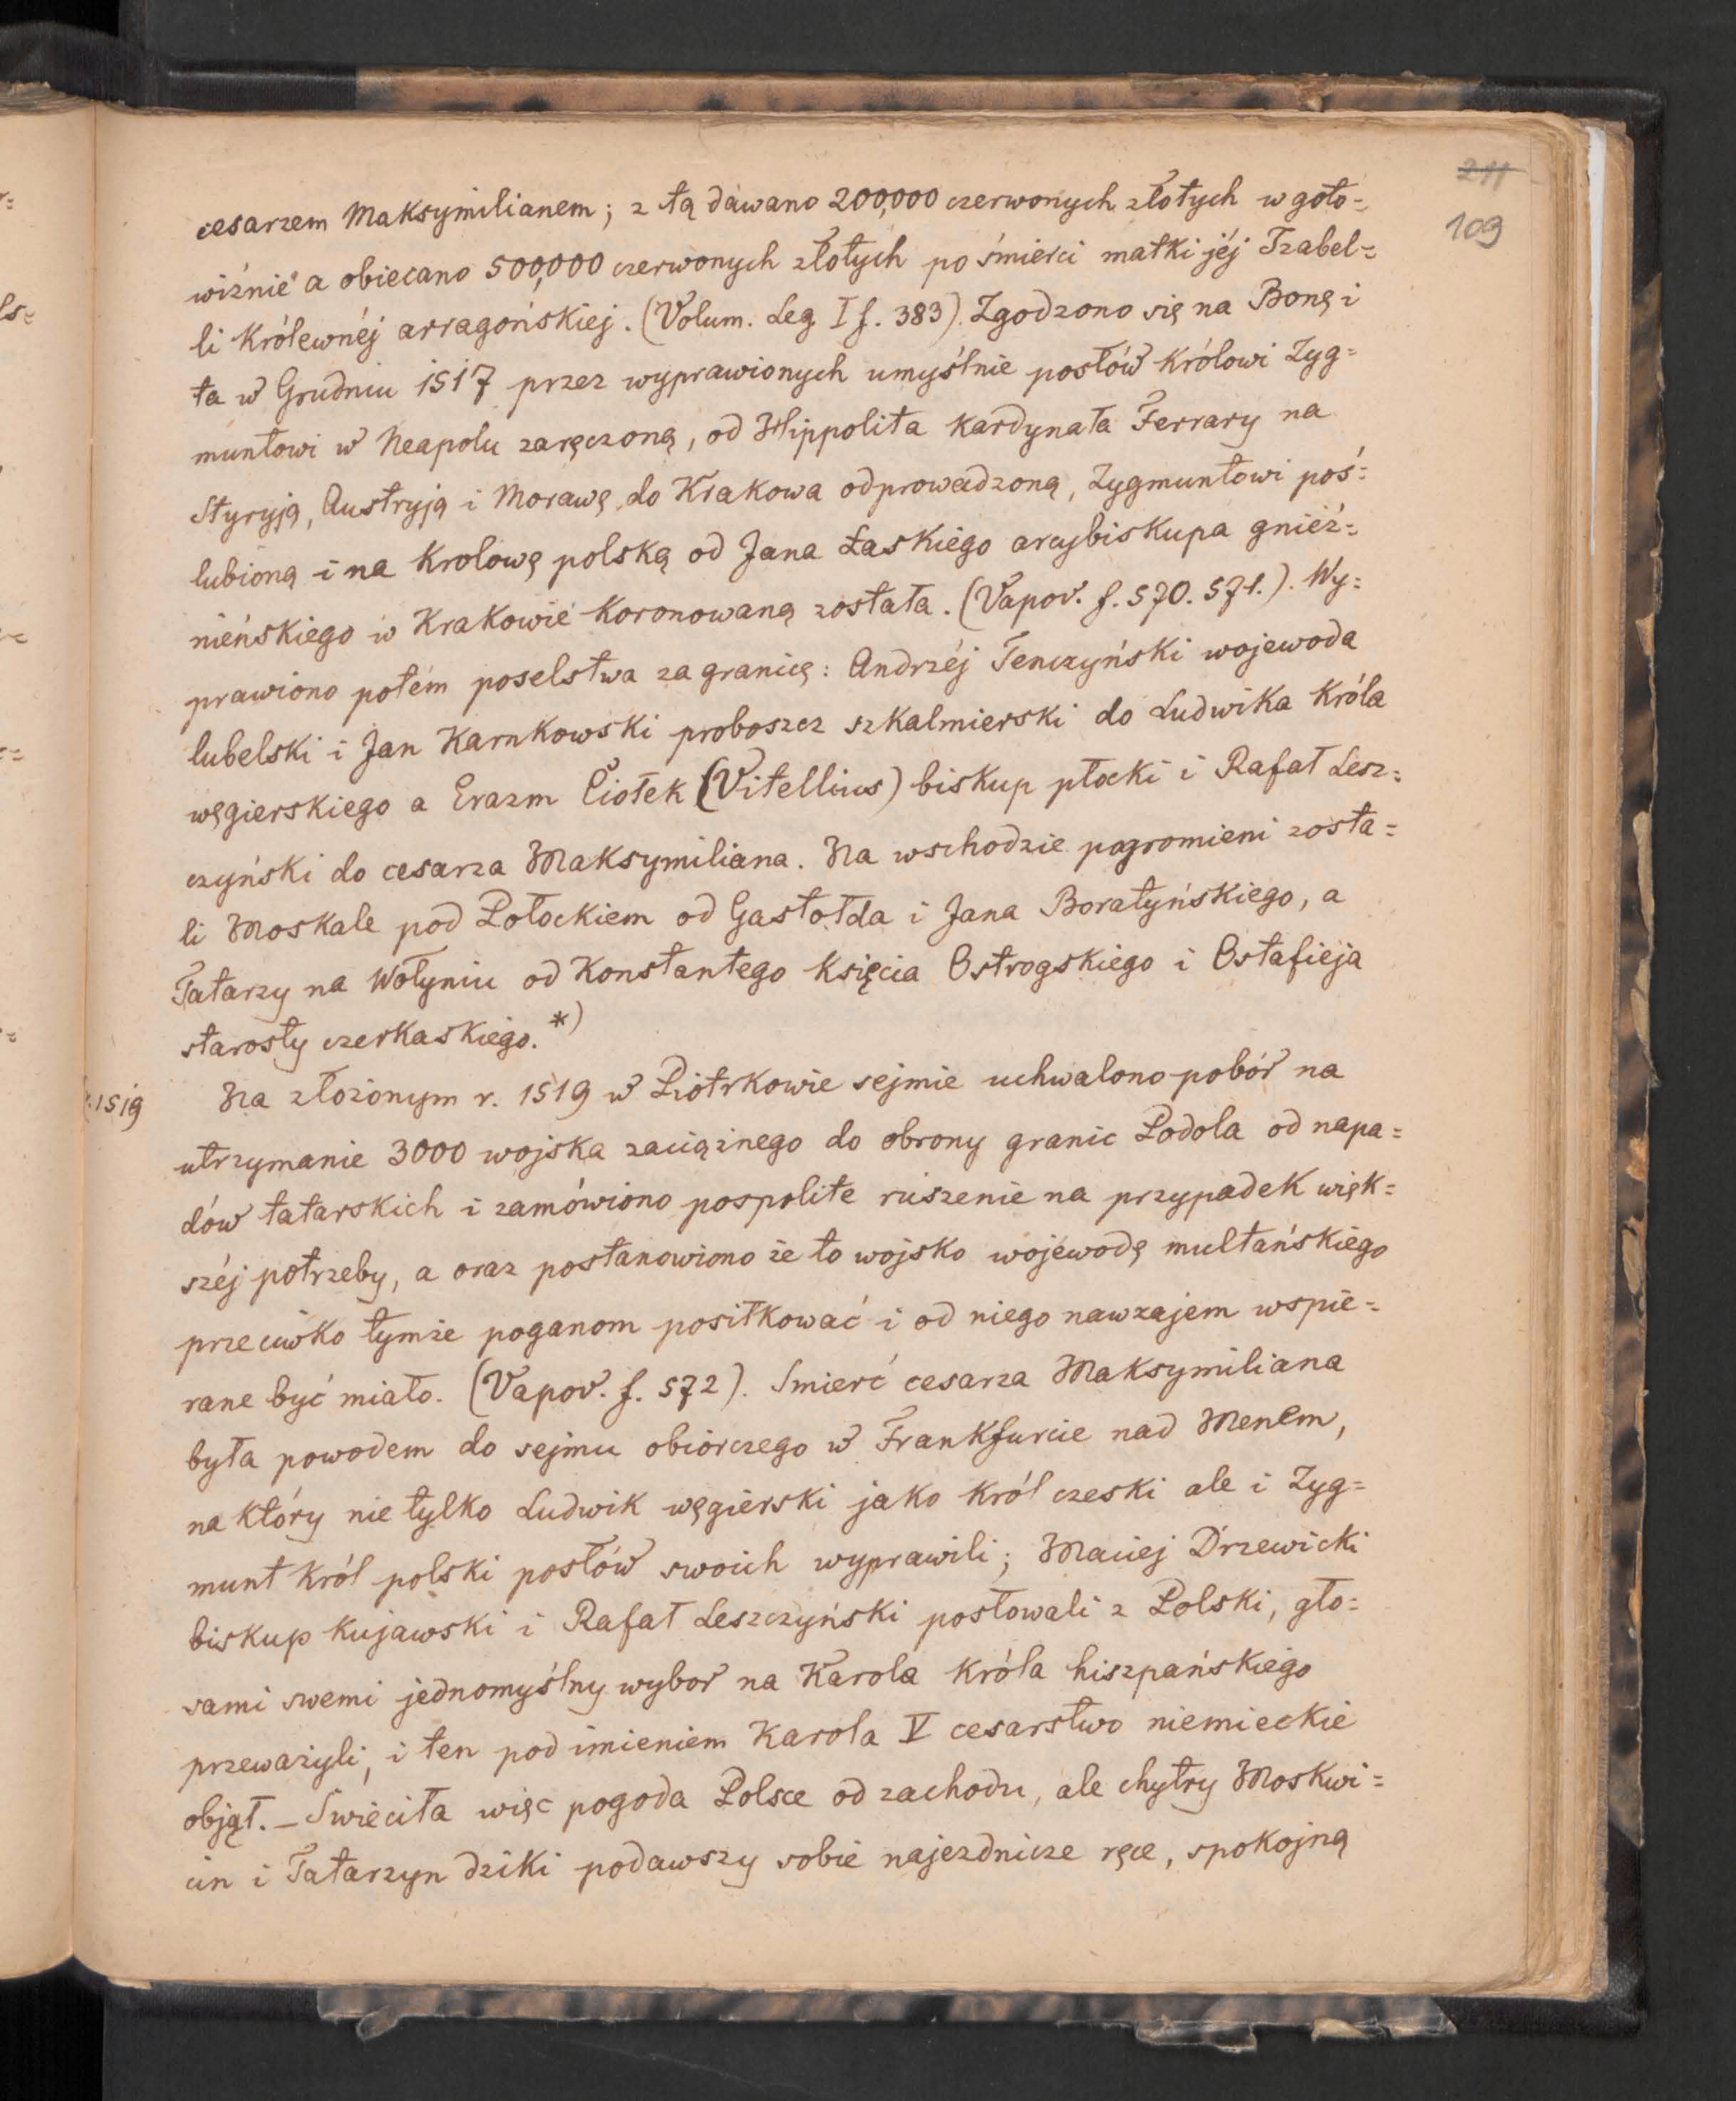 211
109
cesarzem Maksymilianem; z tą dawano 200,000 czerwonych złotych w goto=
wiźnie a obiecano 500,000 czerwonych złotych po śmierci matki jéj Izabel=
li Królewnéj arragońskiej. (Volum. Leg. I f. 383). Zgodzono się na Bonę i
ta w Grudniu 1517 przez wyprawionych umyślnie posłów Królowi Zyg=
muntowi w Neapolu zaręczoną, od Hippolita Kardynała Ferrary na
Styryją, Austryją i Morawę do Krakowa odprowadzoną, Zygmuntowi poś=
lubioną i na Krolowę polską od Jana Łaskiego arcybiskupa gnieź=
nieńskiego w Krakowie Koronowaną została. (Vapov. f. 570. 571.). Wy=
prawiono potém poselstwa za granicę: Andrzéj Tenczyński wojewoda
lubelski i Jan Karnkowski proboszcz szkalmierski do Ludwika Króla
węgierskiego a Erazm Ciołek (Vitellius) biskup płocki i Rafał Lesz=
czyński do cesarza Maksymiliana. Na wschodzie pogromieni zosta=
li Moskale pod Połockiem od Gastołda i Jana Boratyńskiego, a
Tatarzy na Wołyniu od Konstantego Księcia Ostrogskiego i Ostafieja
starosty czerkaskiego. *)
r. 1519
Na złożonym r. 1519 w Piotrkowie sejmie uchwalono pobór na
utrzymanie 3000 wojska zaciążnego do obrony granic Podola od napa=
dów tatarskich i zamówiono pospolite ruszenie na przypadek więk=
széj potrzeby, a oraz postanowiono że to wojsko wojewodę multańskiego
przeciwko tymże poganom posiłkować i od niego nawzajem wspie=
rane być miało. (Vapov. f. 572). Smierć cesarza Maksymiliana
była powodem do sejmu obiorczego w Frankfurcie nad Menem,
na który nie tylko Ludwik węgierski jako Król czeski ale i Zyg=
munt Król polski posłów swoich wyprawili; Maciej Drzewicki
biskup kujawski i Rafał Leszczyński posłowali z Polski, gło=
sami swemi jednomyślny wybor na Karola Króla hiszpańskiego
przeważyli, i ten pod imieniem Karola V cesarstwo niemieckie
objął. – Swieciła więc pogoda Polsce od zachodu, ale chytry Moskwi=
cin i Tatarzyn dziki podawszy sobie najezdnicze ręce, spokojną